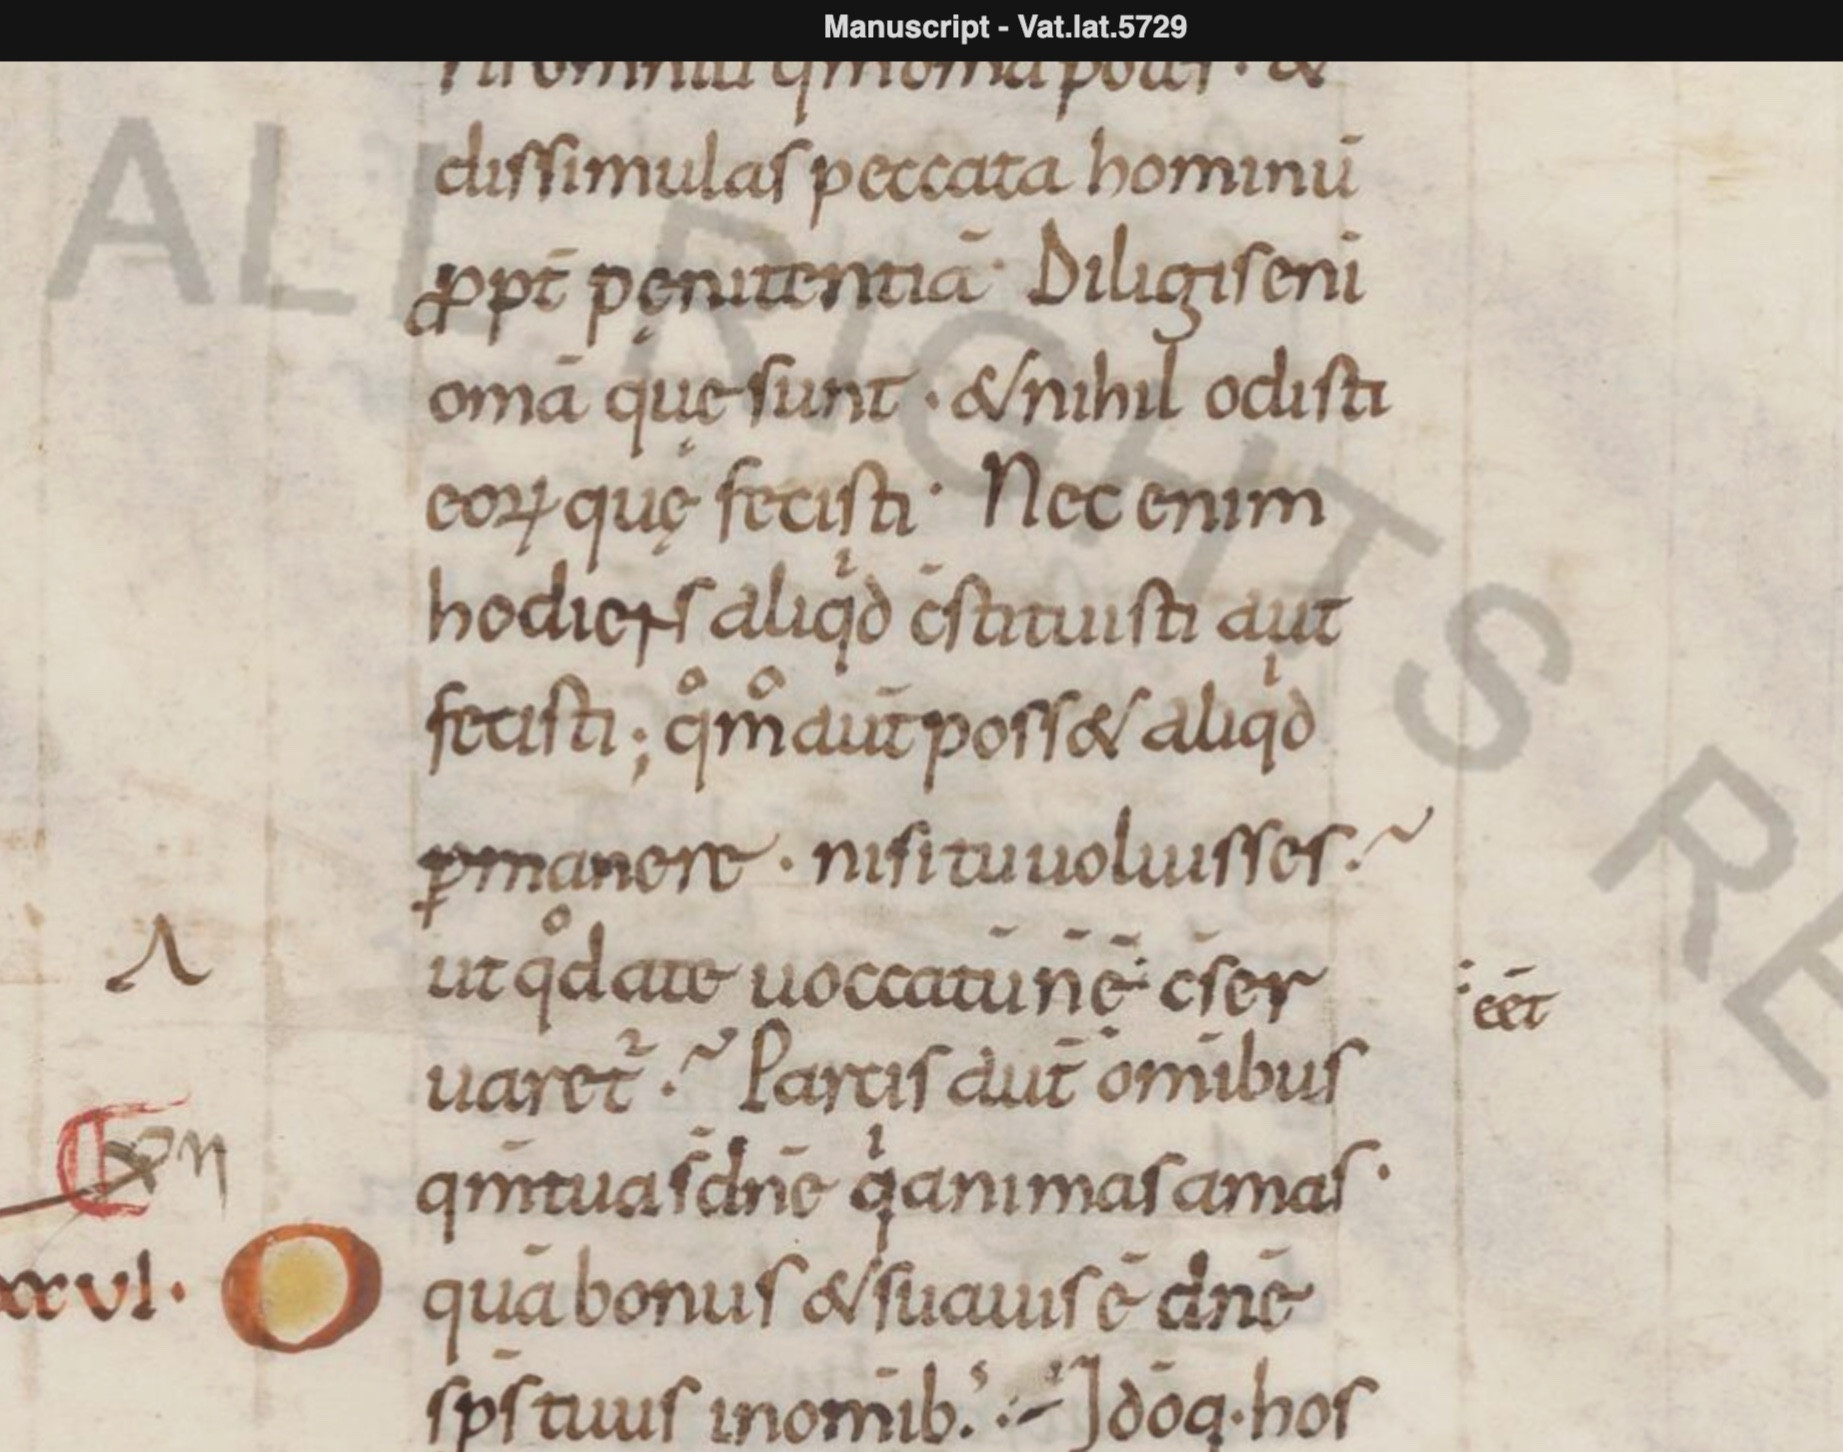 Manuscript - Vat.lat.5729
dissimulas peccata hominū
ꝓpt̄ pęnitentiā· Diligis eni
om̄a quę sunt · & nihil odisti
eoꝝ quę fecisti · Nec enim
hodiens aliqͥd c̄stituisti aut
fecisti ; qͦmͦ aut̄ poss& aliqͥd
ꝑmanere · nisi tu uoluisses·~
ut qͦd a te uoccatū nē c̄ser
eēt
uaret᷑ ·~ Parcis aut̄ om̄ibus
qm̄ tua s̄ dn̄e qͥ animas amas ·
xxvi· O
quā bonus & suauis ē dn̄e
sp̄s tuus in om̄ib:' Idōq· hos
ALL RIGHTS RE